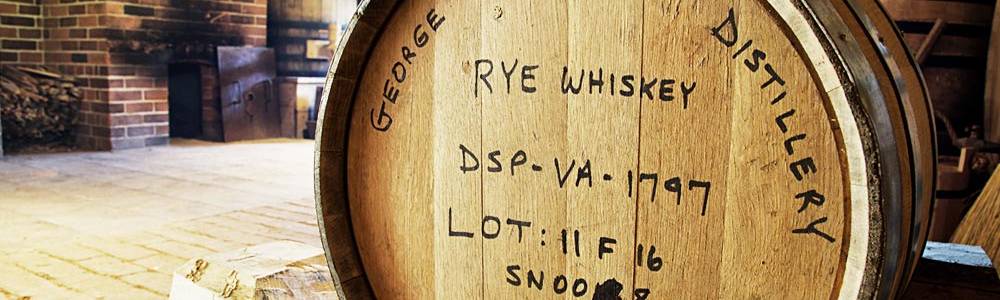 GEORGE
DISTILLERY
RYE WHISKEY
DSP-VA-1797
LOT: 11 F 16